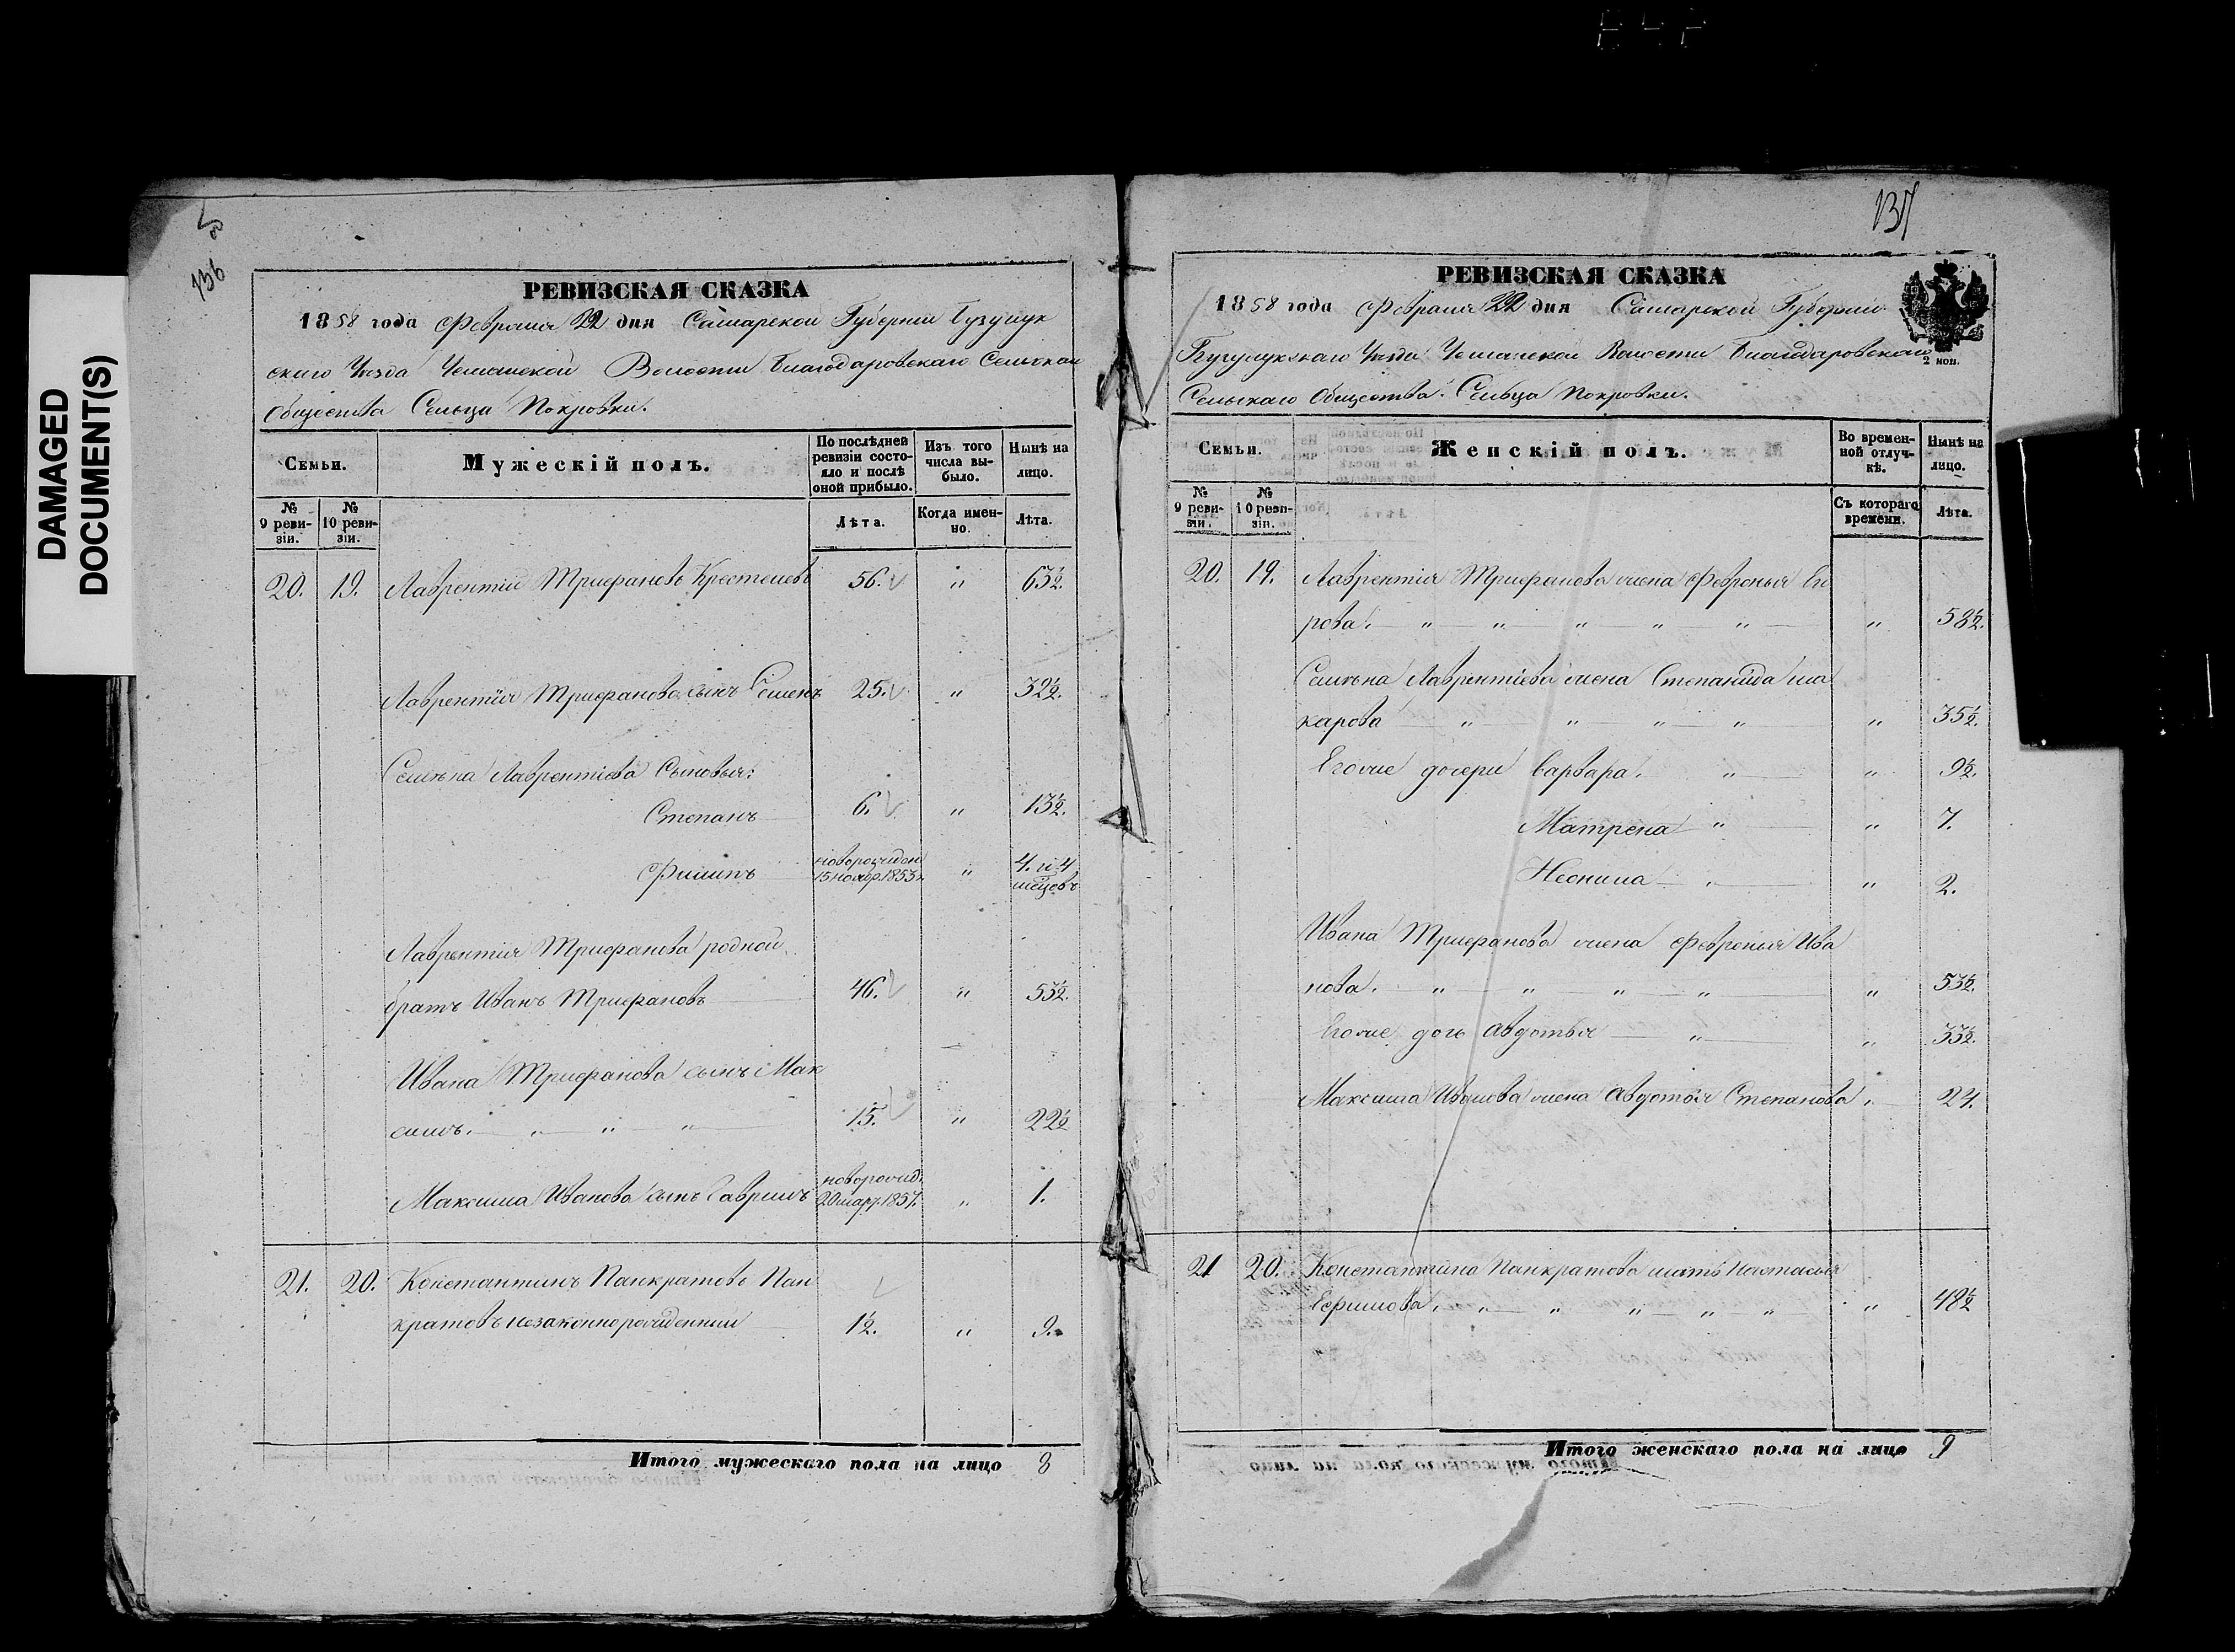 DAMAGED
DOCUMENT(S)
136
РЕВИЗСКАЯ СКАЗКА
1858 года Февраля 22 дня Самарской Губернии Бузулук
скаго Уезда Волости Благодаровскаго Сельскаго
Общества Сельца Покровки.
Семьи.
Мужескій полъ.
По послѣдней
ревизіи состо-
яло и послѣ
оной прибыло.
Изъ того
числа вы-
было.
Нынѣ на
лицо.
№
9 реви-
зіи.
№
10 реви-
зіи.
Лѣта.
Когда имен-
но.
Лѣта.
20. 19. Лаврентій Трифановъ 56. " 63½.
Лаврентія Трифанова сынъ Семенъ 25. " 32½.
Семена Лаврентіева Сыновья:
Степанъ 6. " 13½.
Филипъ новорожден 15 ноябр. 1853 г. " 4. и 4 мѣсцовъ
Лаврентія Трифанова родной
братъ Иванъ Трифановъ 46. " 53½.
Ивана Трифанова сынъ Мак
симъ. " " " 15. " 22½
Максима Иванова сынъ Гаврилъ новорожд. 20 мар. 1857. " 1.
21. 20. Константинъ Панкратовъ Пан
кратовъ незаконнорожденный 1½. " 9.
Итого мужескаго пола на лицо 8
137
РЕВИЗСКАЯ СКАЗКА
1858 года Февраля 22 дня Самарской Губерніи
Уезда Волости Благодаровскаго
2 коп.
Сельскаго Общества. Сельца Покровки.
Семьи.
Женскій полъ.
Во времен-
ной отлуч-
кѣ.
Нынѣ на
лицо.
№
9 реви-
зіи.
№
10 реви-
зіи.
Съ котораго
времени.
Лѣта.
20. 19. Лаврентія Трифанова жена Февронья Ег
рова. " " " " " " 58½.
Семена Лаврентіева жена Степанида Ма
карова " " " " " 35½.
Егоже дочери Варвара. " " 9½.
Матрена " " 7.
Неонила " " 2.
Ивана Трифанова жена Февронья Ива
нова. " " " " " 53½.
Егоже дочь Авдотья " " 33½.
Максима Иванова жена Авдотья Степанова. 24.
21 20. Константина Панкратова мать Настасья
Ефимова. " " " " " " 48½
Итого женскаго пола на лицо 9